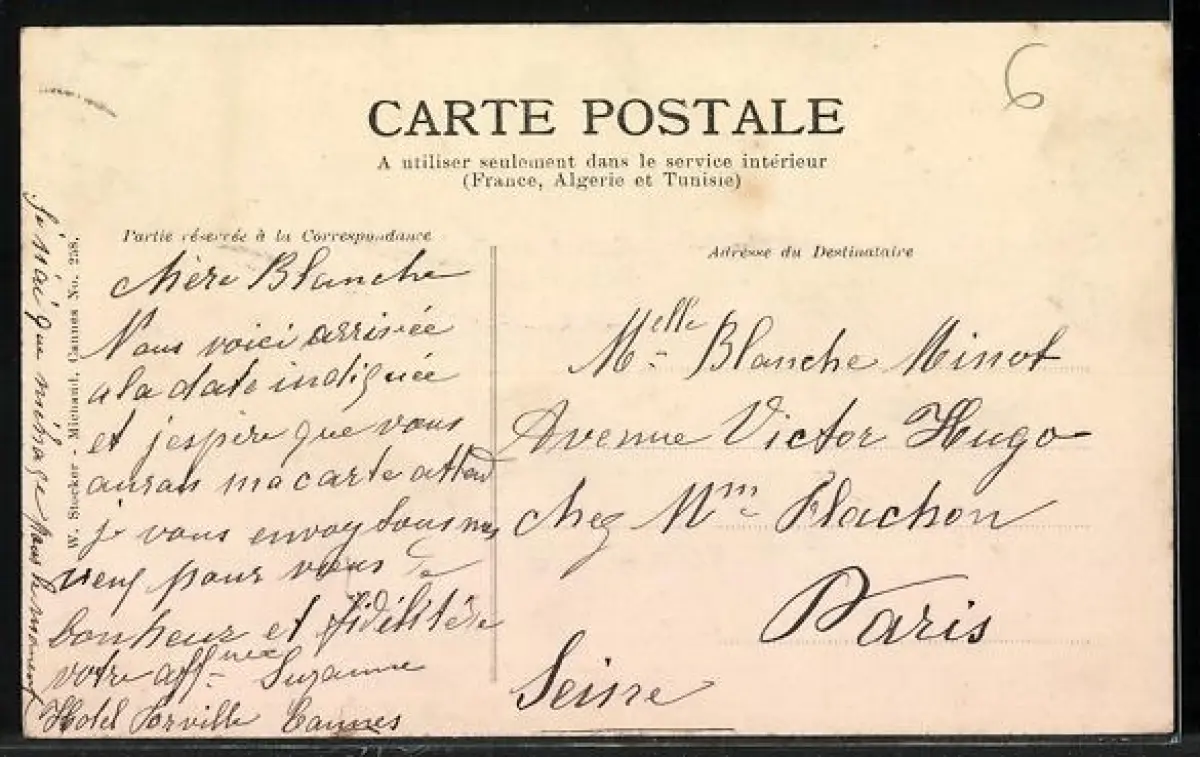 6
CARTE POSTALE
A utiliser seulement dans le service intérieur
(France, Algerie et Tunisie)
Partie réservée à la Correspondance
Adresse du Destinataire
W. Stocker - Michaud, Cannes No. 258.
Chère Blanche
Nous voici arrivée
a la date indiquée
et j'espère que vous
ma carte
je vous envoy tous mes
veux pour vous de
bonheur et fidélité
votre aff.née Suzanne
Hotel Cannes
Je n'ai que
Melle Blanche Minot
Avenue Victor Hugo
chez Mme Flachon
Paris
Seine